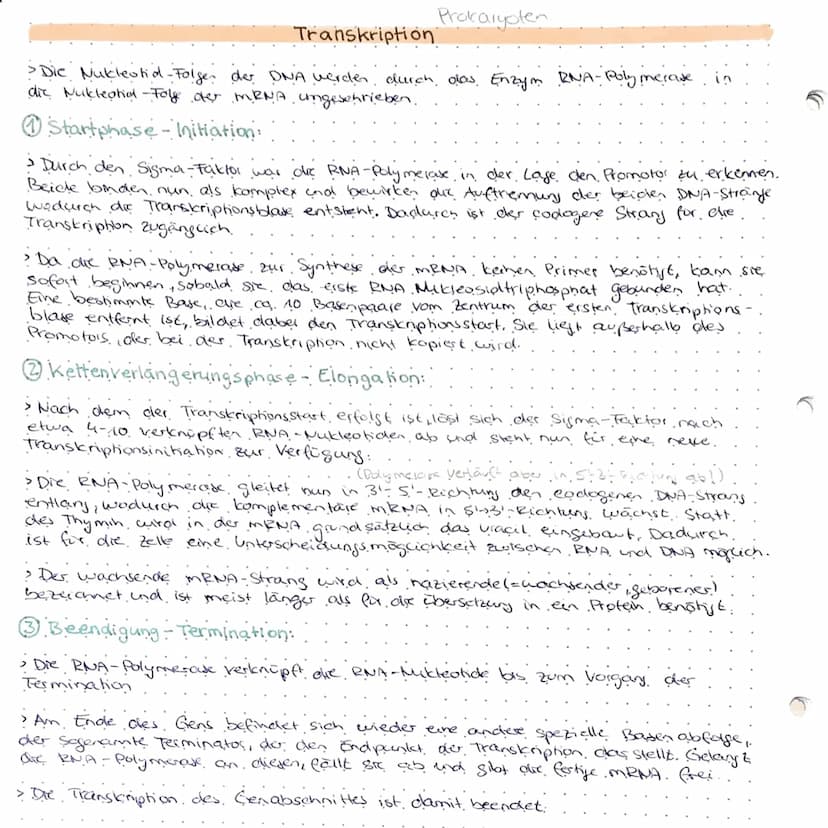 Prokaryoten
Transkription
> Die Nukleotid-Folgen der DNA werden durch das Enzym RNA-Polymerase in
die Nukleotid-Folge der mRNA umgeschrieben.
① Startphase - Initiation:
> Durch den Sigma-Faktor war die RNA-Polymerase in der Lage den Promotor zu erkennen.
Beide binden nun als Komplex und bewirken die Auftrennung der beiden DNA-Stränge
wodurch die Transkriptionsblase entsteht. Dadurch ist der codogene Strang für die
Transkription zugänglich.
> Da die RNA-Polymerase zur Synthese der mRNA keinen Primer benötigt, kann sie
sofort beginnen, sobald sie das erste RNA Nukleosidtriphosphat gebunden hat.
Eine bestimmte Base, die ca. 10 Basenpaare vom Zentrum der ersten Transkriptions-
blase entfernt ist, bildet dabei den Transkriptionsstart. Sie liegt außerhalb des
Promotors, der bei der Transkription nicht kopiert wird.
② Kettenverlängerungsphase - Elongation:
> Nach dem der Transkriptionsstart erfolgt ist, löst sich der Sigma-Faktor nach
etwa 4-10 verknüpften RNA-Nukleotiden ab und steht nun für eine neue
Transkriptionsinitiation zur Verfügung.
(Polymerase verläuft aber in
> Die RNA-Polymerase gleitet nun in 3'-5'-Richtung den codogenen DNA-Strang
entlang, wodurch die komplementäre mRNA in 5'-3'-Richtung wächst. Statt
des Thymin wird in der mRNA grundsätzlich das Uracil eingebaut. Dadurch
ist für die Zelle eine Unterscheidungsmöglichkeit zwischen RNA und DNA möglich.
> Der wachsende mRNA-Strang wird als naszierende (= wachsender, geborener)
bezeichnet und ist meist länger als für die Übersetzung in ein Protein benötigt.
③ Beendigung - Termination:
> Die RNA-Polymerase verknüpft die RNA-Nukleotide bis zum Vorgang der
Termination
> Am Ende des Gens befindet sich wieder eine andere spezielle Basenabfolge,
der sogenannte Terminator, der den Endpunkt der Transkription darstellt. Gelangt
die RNA-Polymerase an diesen, fällt sie ab und gibt die fertige mRNA frei.
> Die Transkription des Genabschnittes ist damit beendet.